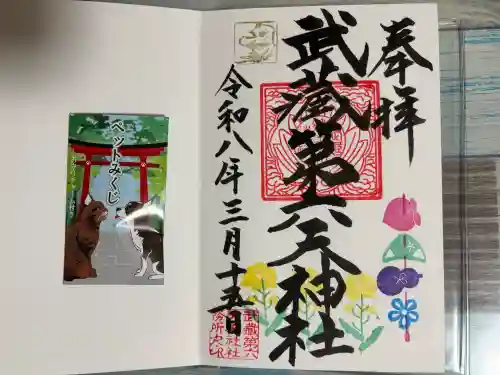 奉拝
武蔵第六天神社
令和八年三月十五日
武蔵第六
ペットみくじ